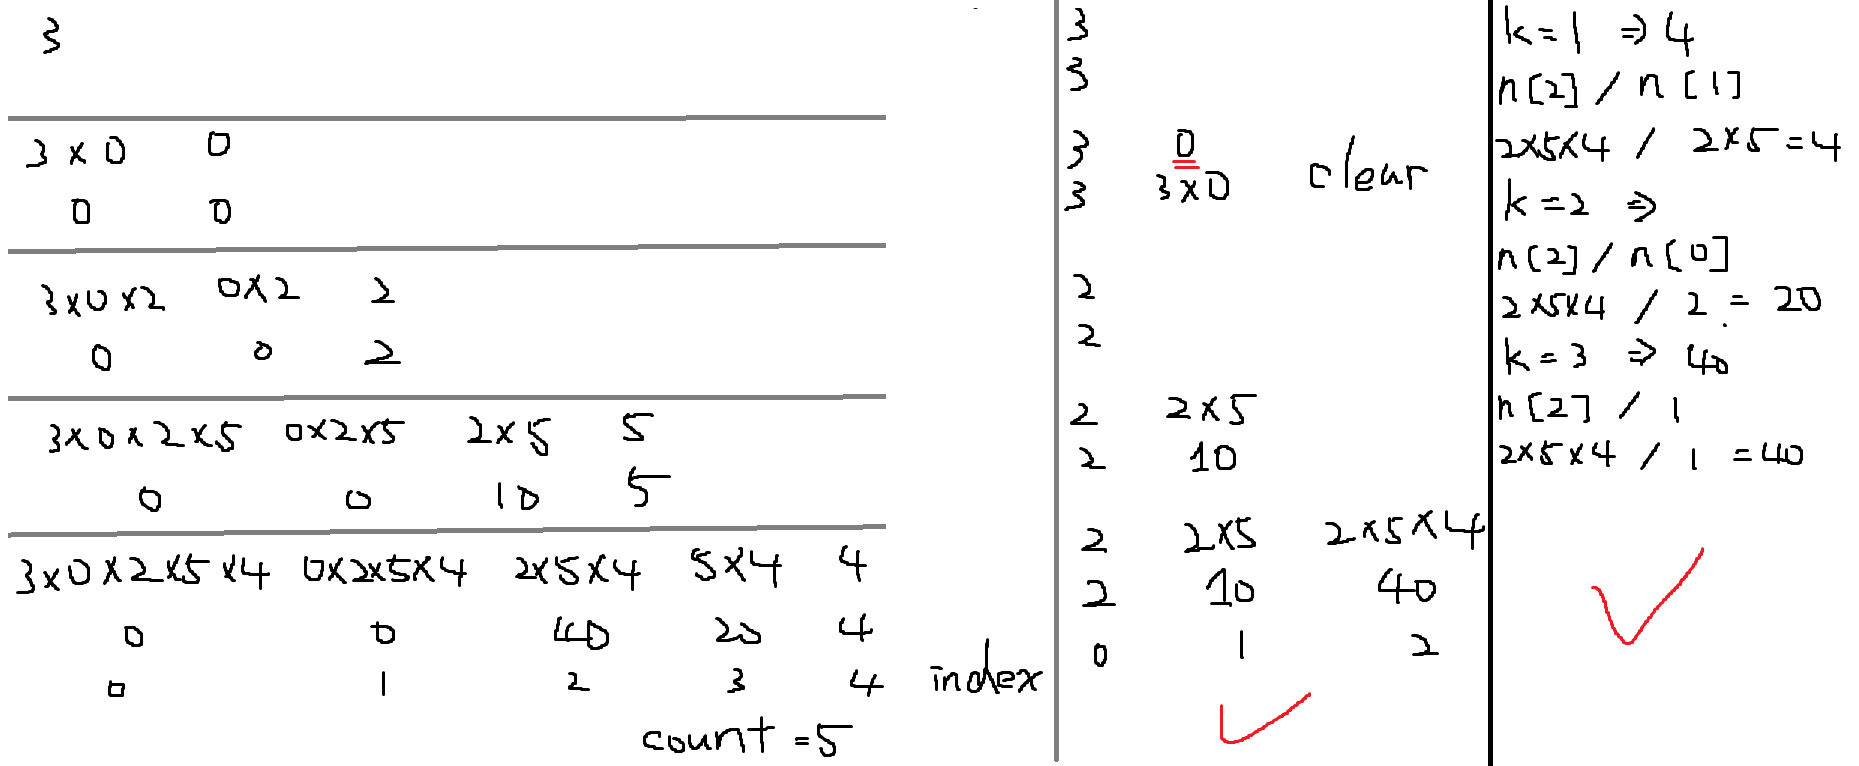 3
3 x 0 0
0 0
3x0x2 0x2 2
0 0 2
3x0x2x5 0x2x5 2x5 5
0 0 10 5
3x0x2x5x4 0x2x5x4 2x5x4 5x4 4
0 0 40 20 4
0 1 2 3 4 index
count = 5
3
3
3 0
3 3x0 clear
2
2
2 2x5
2 10
2 2x5 2x5x4
2 10 40
0 1 2
k=1 ⇒ 4
n[2] / n[1]
2x5x4 / 2x5=4
k=2 ⇒
n[2] / n[0]
2x5x4 / 2 = 20
k=3 ⇒ 40
n[2] / 1
2x5x4 / 1 = 40